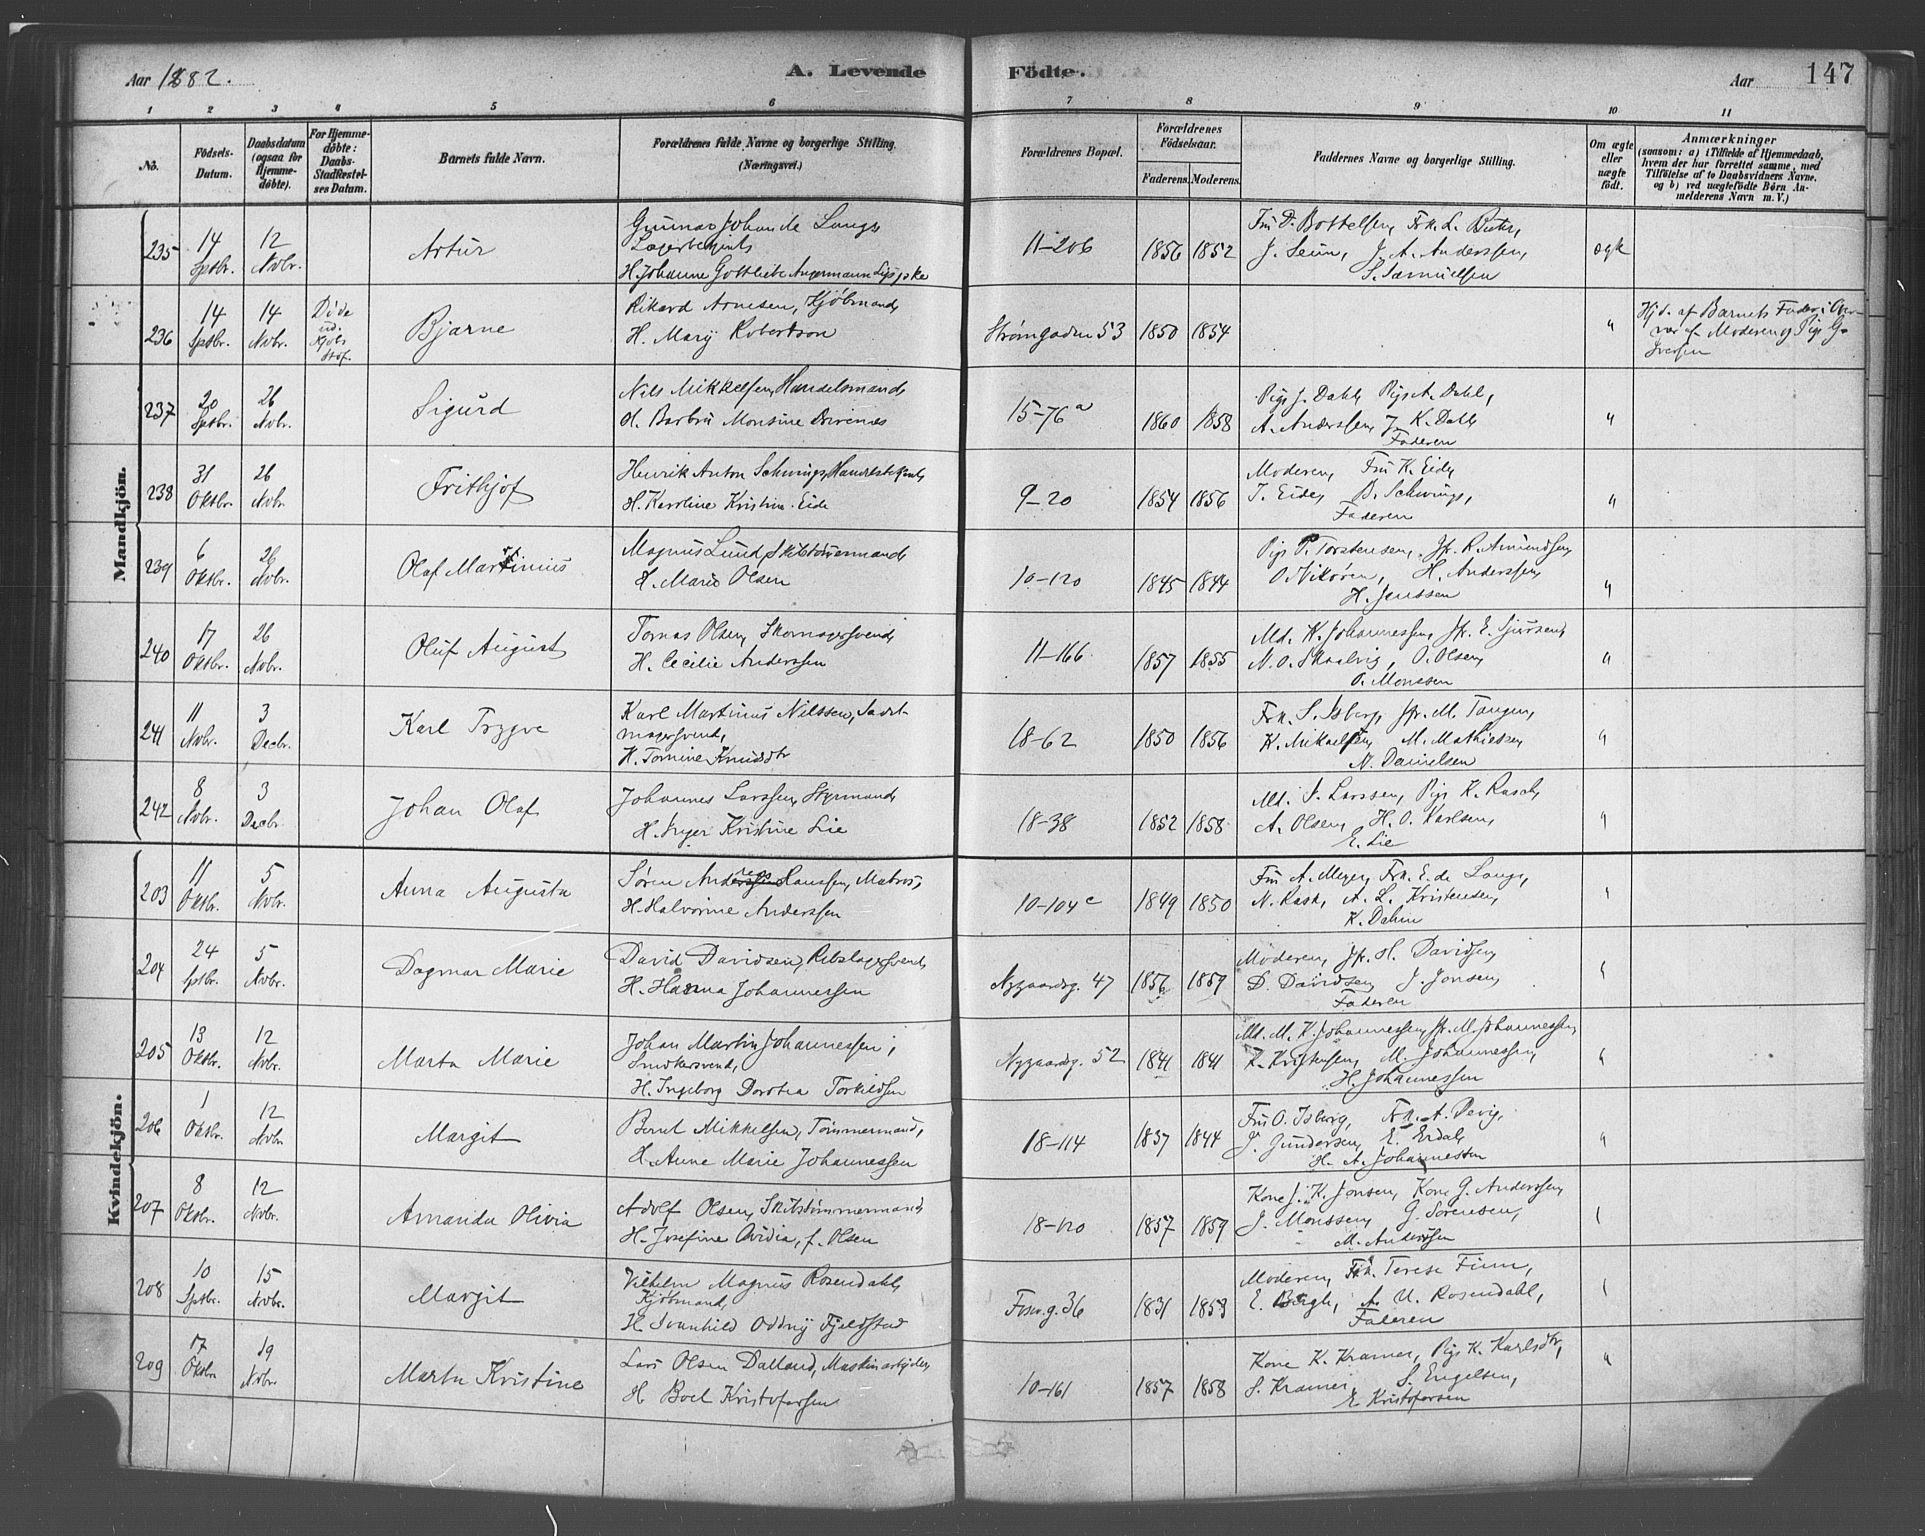 Aar 1882.
A. Levende Födte.
Aar
147
1 2 3 4 5 6 7 8 9 10 11
No.
Födsels-Datum.
Daabsdatum (ogsaa for Hjemme-döbte).
For Hjemme-döbte: Daabs-Stadfæstel-ses Datum.
Barnets fulde Navn.
Forældrenes fulde Navne og borgerlige Stilling. (Næringsvei.)
Forældrenes Bopæl.
Forældrenes Födselsaar.
Faderens. Moderens.
Faddernes Navne og borgerlige Stilling.
Om ægte eller uægte födt.
Anmærkninger
(saasom: a) i Tilfælde af Hjemmedaab,
hvem der har forrettet samme, med
Tilföielse af to Daabsvidners Navne,
og b) ved uægtefödte Börn An-
melderens Navn m. V.)
Mandkjön.
235 14 Sptbr. 12 Novbr. Artur
Gunnar Johan de Lange
H. Johanne Gottliebe Angermann
11-206 1856 1852
J. A. Anderssen,
S. Samuelsen
ægte
236 14 Sptbr. 14 Novbr. Bjarne
Rikard Arnesen, Kjöbmand
H. Mary Robertson
Strömgaden 53 1850 1854 "
Hjd. af Barnets Fader i Over-
vær af Moderen og Pige G.
Iversen
237 20 Sptbr. 26 Novbr. Sigurd
Nils Mikkelsen, Handelsmand
H. Barbra Monsine Drivenes
15-76 a 1860 1858
Pige J. Dahl, Pige A. Dahl,
A. Anderssen, J. K. Dahl,
Faderen
"
238 31 Oktbr. 26 Novbr. Frithjof
Henrik Anton Schwings,
H. Karoline Kristine Eide
9-20 1854 1856
Moderen, Fru K. Eide,
T. Eide, B. Schwings,
Faderen
"
239 6 Oktbr. 26 Novbr. Olaf Martinius
Magnus Lund, Skibstömmermand
H. Marie Olsen
10-120 1845 1844
Pige P. Torstensen, Jfr. R. Amundsen,
H. Anderssen,
H. Jenssen
"
240 17 Oktbr. 26 Novbr. Oluf August
Tomas Olsen, Skomagersvend,
H. Cecilie Anderssen
11-166 1857 1855
Md. K. Johannessen, Jfr. E. Sjursen,
N. O. Skaalvig, O. Olsen,
O. Monssen
"
241 11 Novbr. 3 Decbr. Karl Trygve
Karl Martinus Nilssen, Sadel-
magersvend,
H. Tomine Knudsdtr
18-62 1850 1856
Frk. S. Isberg, Jfr. M. Tangen,
K. Mikaelsen, M. Mathiesen,
N. Danielsen
"
242 8 Novbr. 3 Decbr. Johan Olaf
Johannes Larssen, Styrmand,
H. Inger Kristine Lie
18-38 1852 1858
Md. S. Larssen, Pige K. Rasch,
A. Olsen, H. O. Karlsen,
E. Lie
"
Kvindekjön.
203 11 Oktbr. 5 Novbr. Anna Augusta
Sören Hanssen, Matros,
H. Halvorine Anderssen
10-104 c 1849 1850
Fru A. Meyer, Frk. E. de Lange,
N. Rask, A. L. Kristensen,
K. Dahm
"
204 24 Sptbr. 5 Novbr. Dagmar Marie
David Davidsen, Rebslagersvend,
H. Hanna Johannessen
Nygaardsg. 47 1856 1859
Moderen, Jfr. H. Davidsen,
D. Davidsen, J. Jonsen,
Faderen
"
205 13 Oktbr. 12 Novbr. Marta Marie
Johan Martin Johannessen,
Snedkersvend,
H. Ingeborg Dorotea Torkildsen
Nygaardsg. 52 1841 1841
Md. M. K. Johannessen, Jfr. M. Johannessen,
K. Kristensen, M. Johannessen,
H. Johannessen
"
206 1 Oktbr. 12 Novbr. Margit
Bernt Mikkelsen, Tömmermand,
H. Anne Marie Johannessen
18-114 1837 1844
Fru O. Isberg, Frk. A. Devig,
J. Gundersen, E. Erdal,
H. A. Johannessen
"
207 8 Oktbr. 12 Novbr. Amanda Olivia
Adolf Olsen, Skibstömmermand,
H. Josefine Ovidia, f. Olsen
18-120 1857 1859
Kone J. K. Jonsen, Kone G. Anderssen,
J. Monssen, G. Sörensen,
M. Anderssen
"
208 10 Sptbr. 15 Novbr. Margit
Vilhelm Magnus Rosendahl,
Kjöbmand,
H. Svanhild Oddny Fjeldstad
Fosvg. 36 1831 1853
Moderen, Frk. Terese Finn,
E. Bergh, A. U. Rosendahl,
Faderen
"
209 17 Oktbr. 19 Novbr. Marta Kristine
Lars Olsen Dalland, Maskinarbeider
H. Boel Kristofersen
10-161 1857 1858
Kone K. Kramer, Pige K. Karlsdtr,
S. Kramer, S. Engelsen,
E. Kristofersen
"